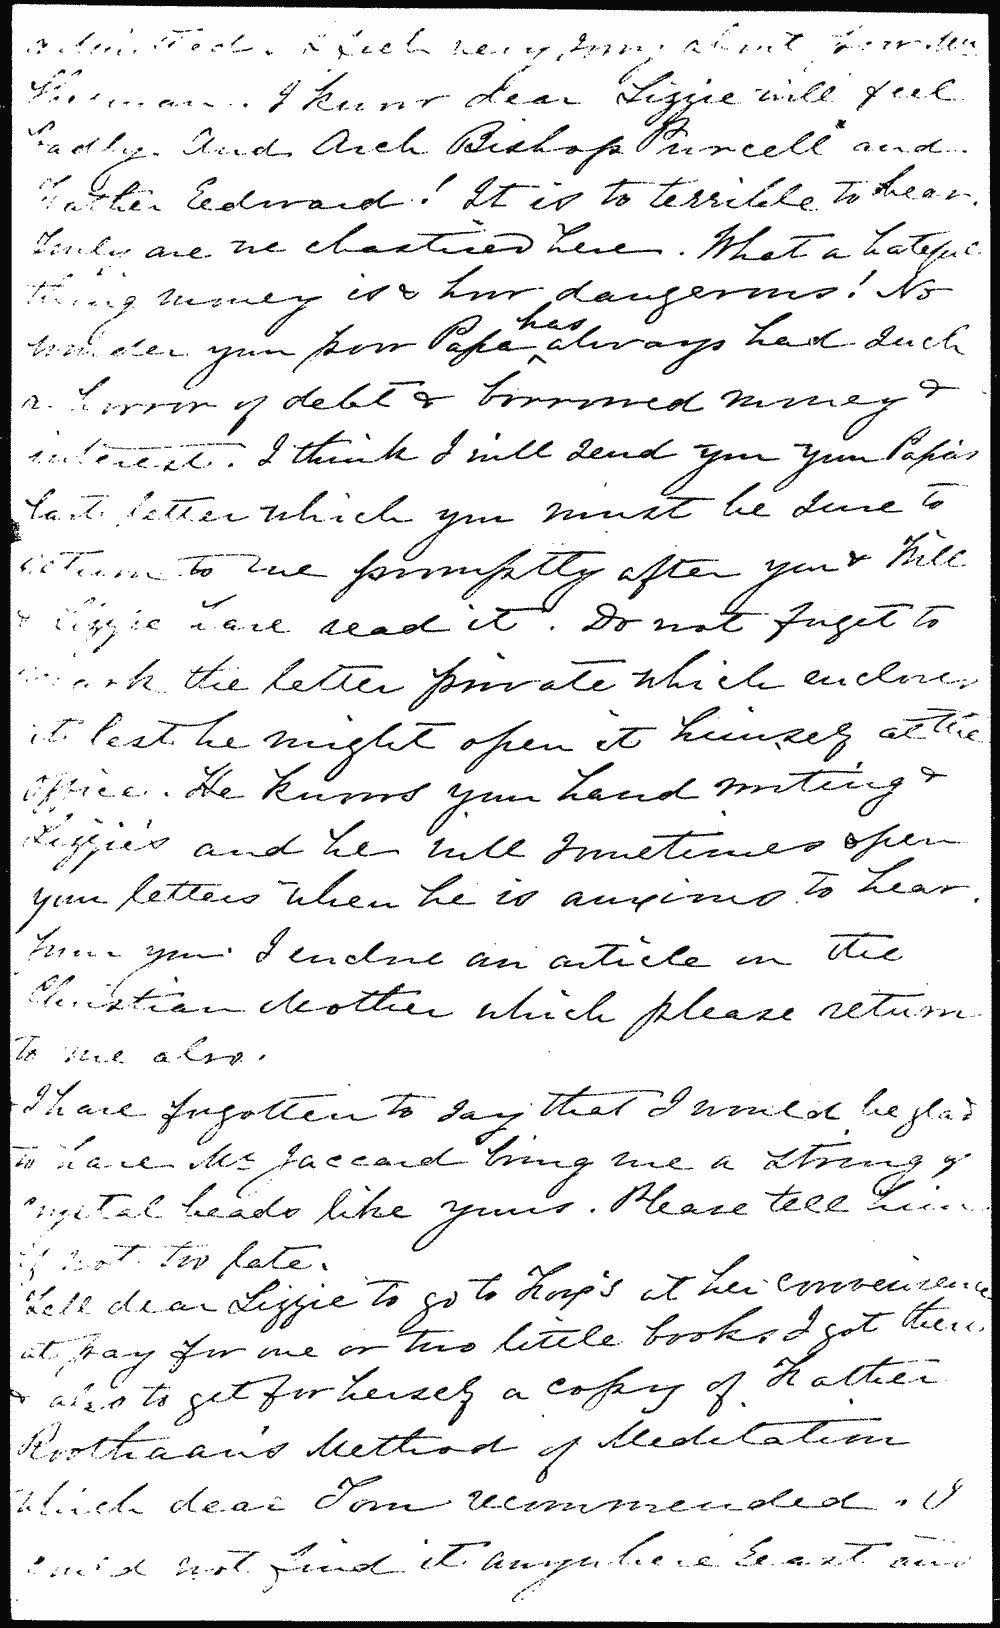 admitted. I feel very sorry about
Sherman. I know dear Lizzie will feel
badly. And Arch Bishop Purcell and
Father Eedward! It is to terrible to hear.
Truly are we chastised here. What a hateful
thing money is & how dangerous! No
wonder your poor Papa has always had such
a horror of debt & borrowed money &
interest. I think I will send you your Papa's
last letter which you must be sure to
return to me promptly after you & Will
& Lizzie have read it. Do not forget to
mark the letter private which encloses
it lest he might open it himself at the
office. He knows your hand writing &
Lizzie's and he will sometimes open
your letters when he is anxious to hear.
from you. I enclose an article on the
Christian Mother which please return
to me also.
I have forgotten to say that I would be glad
to have Mr Jaccard bring me a string of
crystal beads like yours. Please tell him
if not too late.
Tell dear Lizzie to go to Fox's at her convenience
at pay for one or two little books I got there
& also to get for herself a copy of Father
Roothaan's Method of Meditation
which dear Tom recommended. I
could not find it anywhere East and